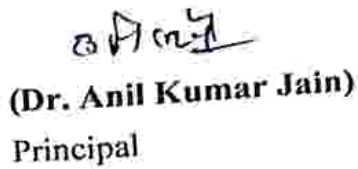 (Dr. Anil Kumar Jain)
Principal